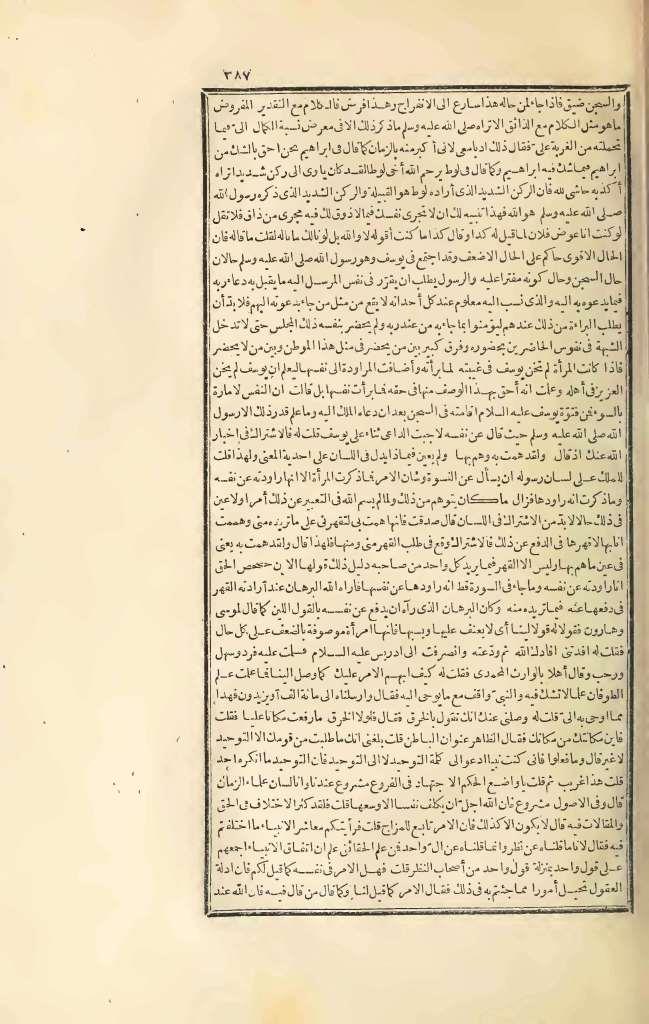 ٣٨٧
والسجن ضيق فاذا جاء لمن حاله هذا سارع الى الانفراج وهذا فرض فالكلام مع التقدير المفروض
ما هو مثل الكلام مع الذائق ألا تراه صلى الله عليه وسلم ما ذكر ذلك الا فى معرض نسبة الكمال الى فيما
تحملته من الغربة على فقال ذلك أدبا معى لانى أكبر منه بالزمان كما قال فى ابراهيم نحن أحق بالشك من
ابراهيم فيما شك فيه ابراهيم وكما قال فى لوط يرحم الله أخى لوطا لقد كان يأوى الى ركن شديد أتراه
أكذبه حاشى لله فان الركن الشديد الذى أراده لوط هو القبيلة والركن الشديد الذى ذكره رسول الله
صلى الله عليه وسلم هو الله فهذا تنبيه لك ان لا تجرى نفسك فيما لا ذوق لك فيه مجرى من ذاق فلا تقل
لو كنت أنا عوض فلان لما قيل له كذا وقال كذا ما كنت أقوله لا والله بل لو نالك ما ناله لقلت ما قاله فان
الحال الاقوى حاكم على الحال الاضعف وقد اجتمع فى يوسف وهو رسول الله صلى الله عليه وسلم حالان
حال السجن وحال كونه مفترا عليه والرسول يطلب ان يقرر فى نفس المرسل اليه ما يقبل به دعاء ربه
فيما يدعوه به اليه والذى نسب اليه معلوم عند كل أحد انه لا يقع من مثل من جاء بدعوته اليهم فلا بد أن
يطلب البراءة من ذلك عندهم ليؤمنوا بما جاء به من عند ربه ولم يحضر بنفسه ذلك المجلس حتى لا تدخل
الشبهة فى نفوس الحاضرين بحضوره وفرق كبير بين من يحضر فى مثل هذا الموطن وبين من لا يحضر
فاذا كانت المرأة لم تخن يوسف فى غيبته لما برأته وأضافت المراودة الى نفسها ليعلم ان يوسف لم يخن
العزيز فى أهله وعلمت انه أحق بهذا الوصف منها فى حقه فما برأت نفسها بل قالت ان النفس لامارة
بالسوء فمن فتوة يوسف عليه السلام اقامته فى السجن بعد ان دعاه الملك اليه وما علم قدر ذلك الا رسول
الله صلى الله عليه وسلم حيث قال عن نفسه لاجبت الداعى ثناء على يوسف قلت له فالاشتراك فى اخبار
الله عنك اذ قال ولقد همت به وهم بها ولم يعين فيما ذا يدل فى اللسان على أحدية المعنى ولهذا قلت
للملك على لسان رسوله ان يسأل عن النسوة وشان الامر فما ذكرت المرأة الا انها راودته عن نفسه
وما ذكرت انه راودها فزال ما كان يتوهم من ذلك ولما لم يسم الله فى التعبير عن ذلك أمرا ولا عين
فى ذلك حالا لا بد من الاشتراك فى اللسان قال صدقت فانها همت بى لتقهرنى على ما تريده منى وهممت
أنا بها لاقهرها فى الدفع عن ذلك فالاشتراك وقع فى طلب القهر منى ومنها فلهذا قال ولقد همت به يعنى
فى عين ما هم بها وليس الا القهر فيما يريد كل واحد من صاحبه دليل ذلك قولها الآن حصحص الحق
أنا راودته عن نفسه وما جاء فى السورة قط انه راودها عن نفسها فاراه الله البرهان عند ارادته القهر
فى دفعها عنه فيما تريده منه وكان البرهان الذى رآه ان يدفع عن نفسه بالقول اللين كما قال لموسى
وهارون فقولا له قولا لينا أى لا يعنف عليها ويسبها فانها امرأة موصوفة بالضعف على كل حال
فقلت له أفدتنى أفادك الله ثم ودعته وانصرفت الى ادريس عليه السلام فسلمت عليه فرد وسهل
ورحب وقال أهلا بالوارث المحمدى فقلت له كيف أبهم الامر عليك كما وصل الينا فما علمت علم
الطوفان علما لا تشك فيه والنبى واقف مع ما يوحى اليه فقال وأرسلناه الى مائة ألف أو يزيدون فهذا
مما أوحى به الى قلت له وصلنى عنك انك تقول بالخرق فقال فلولا الخرق ما رفعت مكانا عليا فقلت
فاين مكانتك من مكانك فقال الظاهر عنوان الباطن قلت بلغنى انك ما طلبت من قومك الا التوحيد
لا غير قال وما فعلوا فانى كنت نبيا أدعو الى كلمة التوحيد لا الى التوحيد فان التوحيد ما أنكره أحد
قلت هذا غريب ثم قلت يا واضع الحكم الاجتهاد فى الفروع مشروع عندنا وأنا لسان علماء الزمان
قال وفى الاصول مشروع فان الله أجل ان يكلف نفسا الا وسعها قلت فلقد كثر الاختلاف فى الحق
والمقالات فيه قال لا يكون الا كذلك فان الامر تابع للمزاج قلت فرأيتكم معاشر الانبياء ما اختلفتم
فيه فقال لانا ما قلناه عن نظر وانما قلناه عن ال واحد فمن علم الحقائق علم ان اتفاق الانبياء أجمعهم
على قول واحد بمنزلة قول واحد من أصحاب النظر قلت فهل الامر فى نفسه كما قيل لكم فان أدلة
العقول تحيل أمورا مما جئتم به فى ذلك فقال الامر كما قيل لنا وكما قال من قال فيه فان الله عند